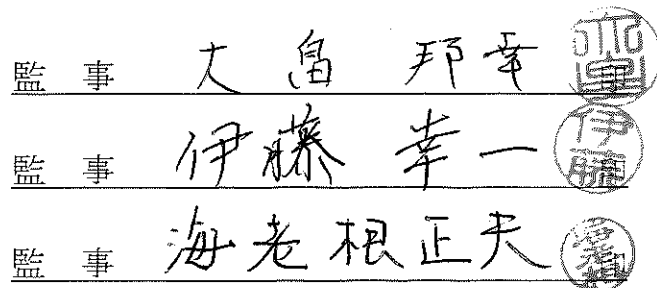 監 事 大 畠 邦 幸 印
監 事 伊 藤 幸 一 伊藤
監 事 海 老 根 正 夫 海老根